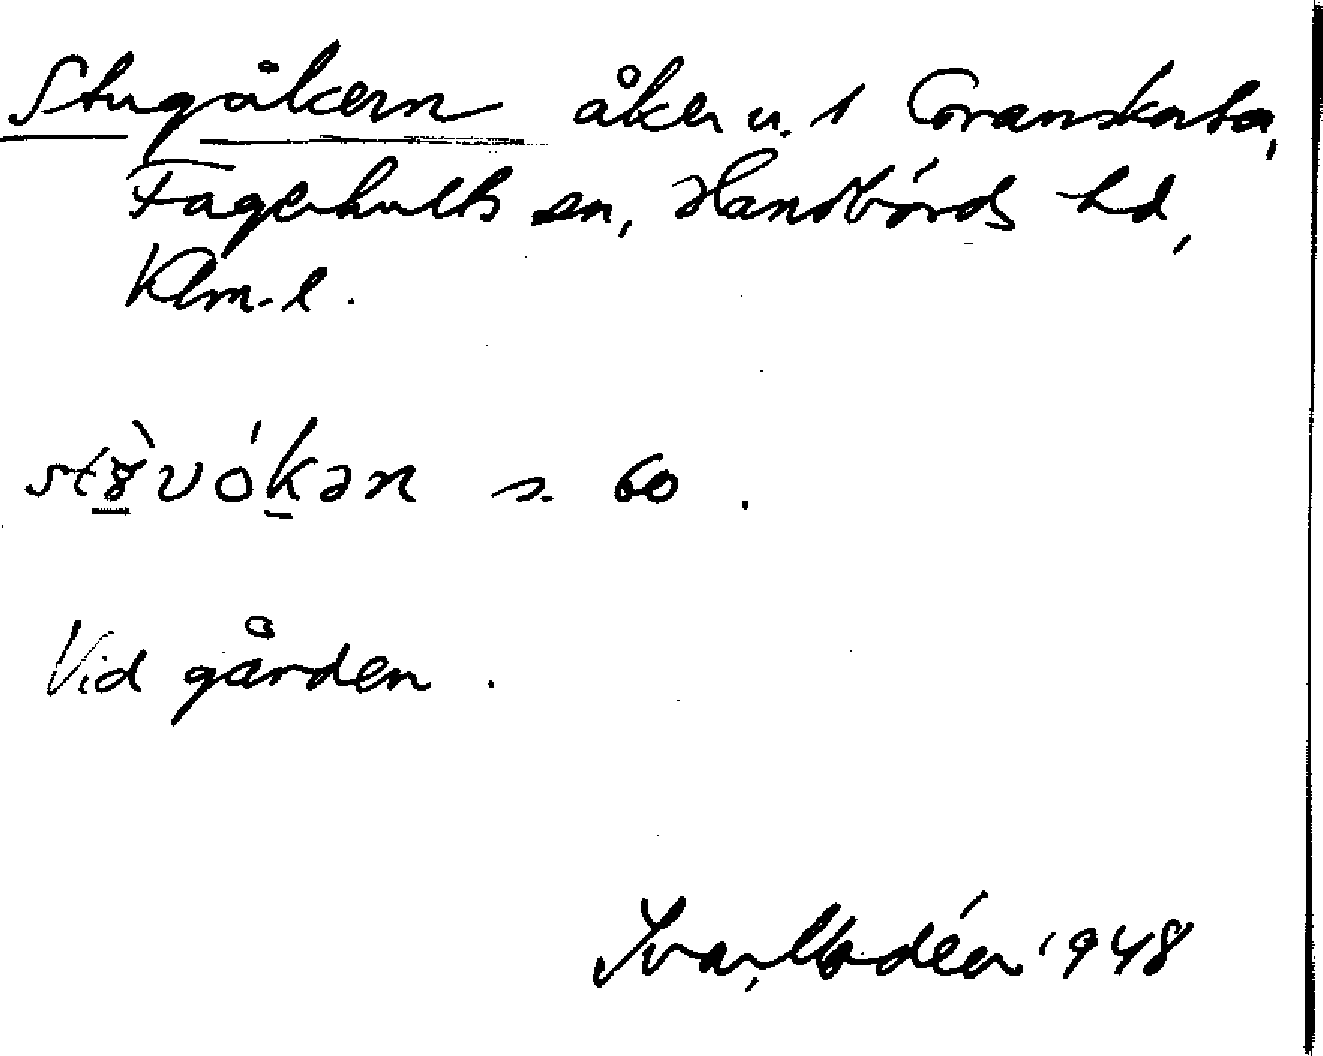 Stugåkern åker u. 1 Granskorta,
Fagerhults sn, Handbörds hd,
Klm. l.
s. 60.
Vid gården.
Ivar Modéer 1948